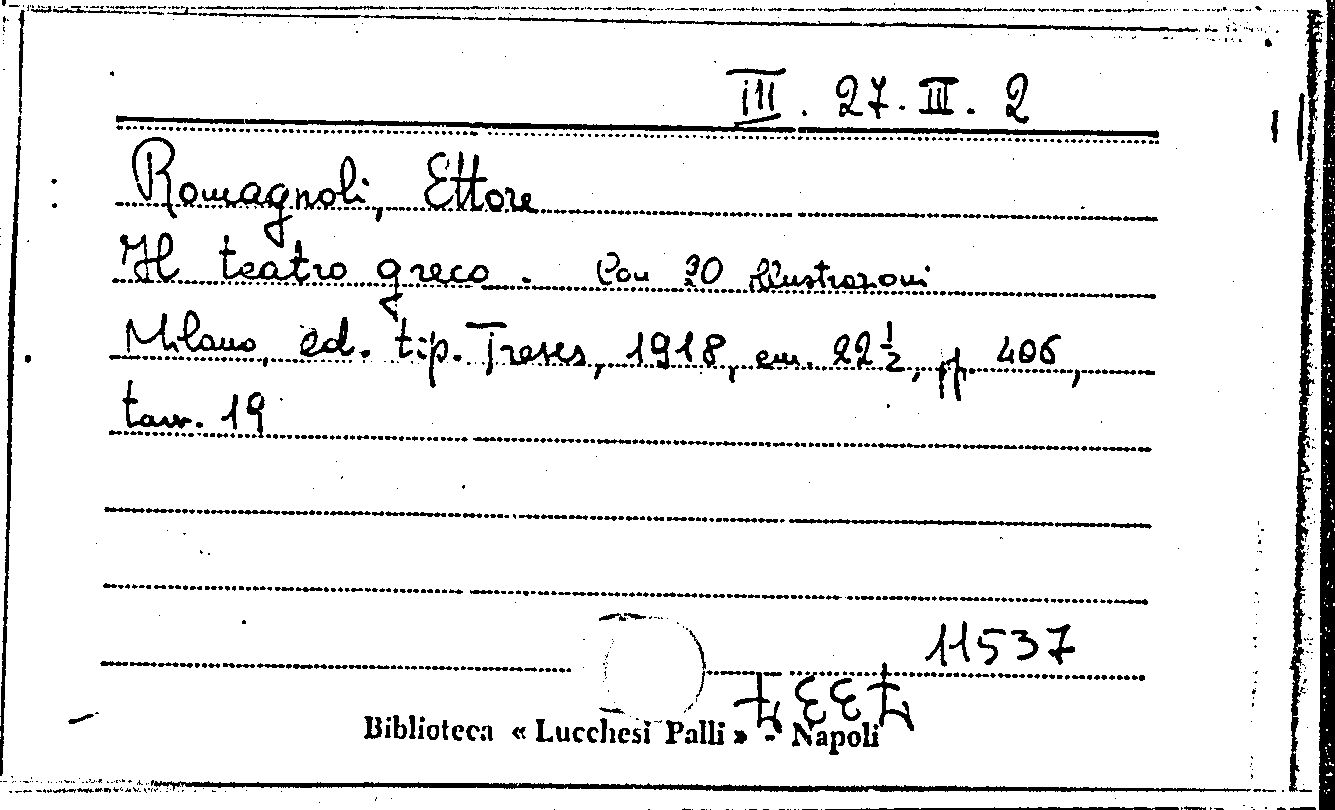 III. 27. III. 2
Romagnoli, Ettore
Il teatro greco. Con 30 illustrazioni
Milano, ed. tip. Treves, 1918, cm. 22 ½, pp. 406,
tavv. 19
11537
Biblioteca « Lucchesi Palli » - Napoli